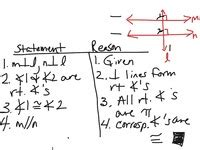 m
2
n
1
l
Statement Reason
1. m⊥l, n⊥l 1. Given
2. ∠1 & ∠2 are 2. ⊥ lines form
rt. ∠'s rt ∠'s.
3. ∠1 ≅ ∠2 3. All rt. ∠'s
are ≅
4. m//n 4. corresp. ∠'s are
≅